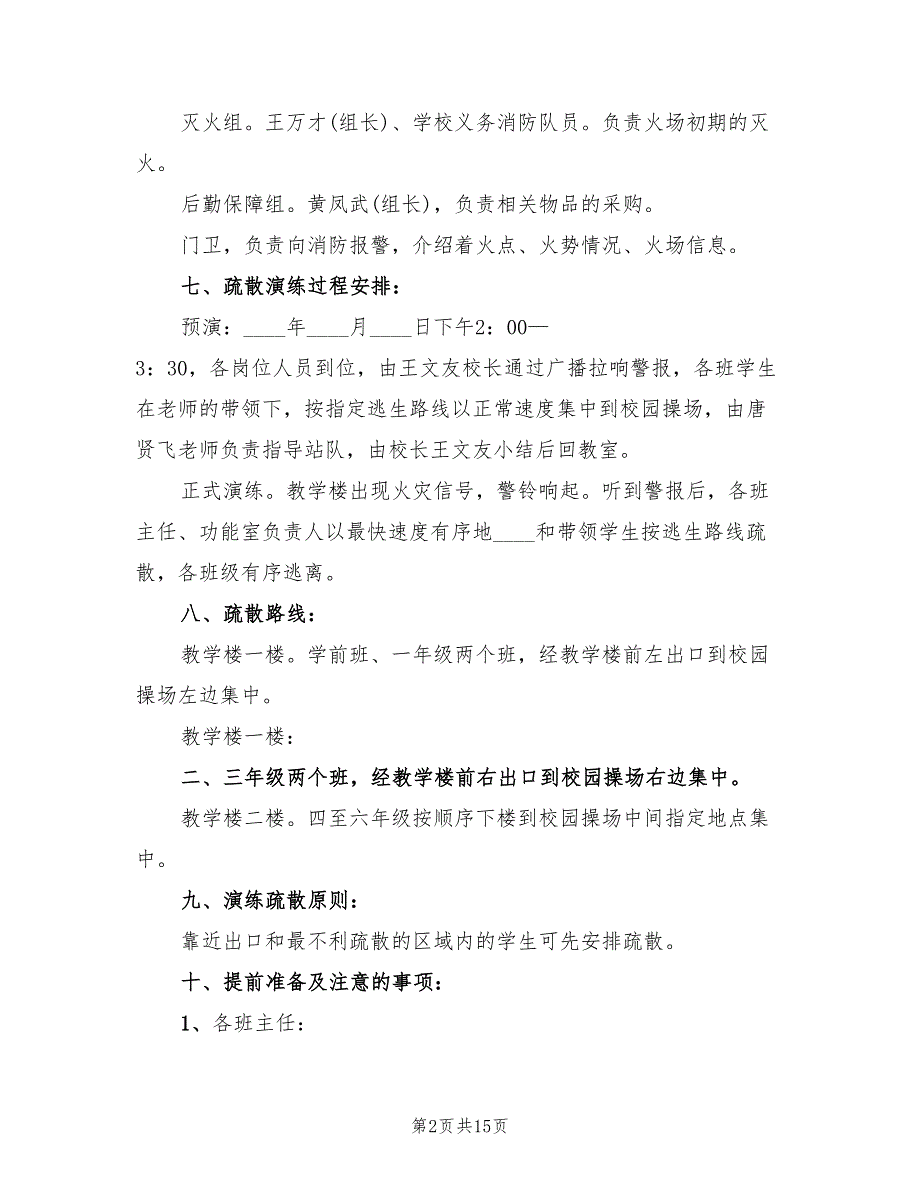 灭火组。王万才(组长)、学校义务消防队员。负责火场初期的灭
火。
后勤保障组。黄凤武(组长)，负责相关物品的采购。
门卫，负责向消防报警，介绍着火点、火势情况、火场信息。
七、疏散演练过程安排：
预演：____年____月____日下午2：00—
3：30，各岗位人员到位，由王文友校长通过广播拉响警报，各班学生
在老师的带领下，按指定逃生路线以正常速度集中到校园操场，由唐
贤飞老师负责指导站队，由校长王文友小结后回教室。
正式演练。教学楼出现火灾信号，警铃响起。听到警报后，各班
主任、功能室负责人以最快速度有序地____和带领学生按逃生路线疏
散，各班级有序逃离。
八、疏散路线：
教学楼一楼。学前班、一年级两个班，经教学楼前左出口到校园
操场左边集中。
教学楼一楼：
二、三年级两个班，经教学楼前右出口到校园操场右边集中。
教学楼二楼。四至六年级按顺序下楼到校园操场中间指定地点集
中。
九、演练疏散原则：
靠近出口和最不利疏散的区域内的学生可先安排疏散。
十、提前准备及注意的事项：
1、各班主任：
第2页共15页